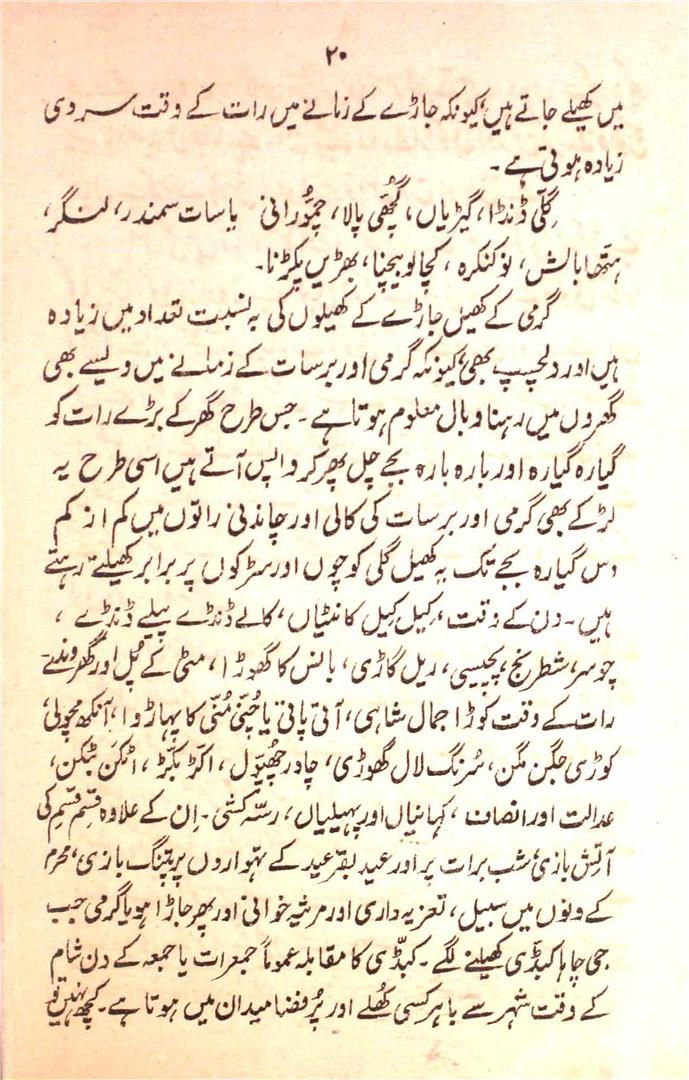 ۲۰
میں کھیلے جاتے ہیں، کیونکہ جاڑے کے زمانے میں رات کے وقت سردی
زیادہ ہوتی ہے۔
گلّی ڈنڈا، گیڑیاں، گچھّی پالا، چمّورانی یا سات سمندر، لنگر،
ہتھا بالش، نو کنکرہ، کچالو بیچنا، بھڑیں پکڑنا۔
گرمی کے کھیل جاڑے کے کھیلوں کی بہ نسبت تعداد میں زیادہ
ہیں اور دلچسپ بھی، کیونکہ گرمی اور برسات کے زمانے میں ویسے بھی
گھروں میں رہنا وبال معلوم ہوتا ہے۔ جس طرح گھر کے بڑے رات کو
گیارہ گیارہ اور بارہ بارہ بجے چل پھر کر واپس آتے ہیں اسی طرح یہ
لڑکے بھی گرمی اور برسات کی کالی اور چاندنی راتوں میں کم از کم
دس گیارہ بجے تک یہ کھیل گلی کوچوں اور سڑکوں پر برابر کھیلتے رہتے
ہیں۔ دن کے وقت، کیل کیل کانٹیاں، کالے ڈنڈے پیلے ڈنڈے،
چوسر، شطرنج، پچیسی، ریل گاڑی، بانس کا گھوڑا، مٹی کے پُل اور گھروندے
رات کے وقت کوڑا جمال شاہی، آتی پاتی یا چُنّی مُنّی کا پہاڑوا، آنکھ مچولی،
کوڑی جگن مگن، سُرنگ لال گھوڑی، چادر چھپّول، اکڑ بکڑ، اٹکن بٹکن،
عدالت اور انصاف، کہانیاں اور پہیلیاں، رسّہ کشی۔ اِن کے علاوہ قِسم قِسم کی
آتش بازی، شب برات پر اور عید بقرعید کے تہواروں پر پتنگ بازی، محرم
کے دنوں میں سبیل، تعزیہ داری اور مرثیہ خوانی اور پھر جاڑا ہو یا گرمی جب
جی چاہا کبڈّی کھیلنے لگے۔ کبڈّی کا مقابلہ عموماً جمعرات یا جمعہ کے دن شام
کے وقت شہر سے باہر کسی کھُلے اور پُر فضا میدان میں ہوتا ہے۔ کچھ نہیں تو